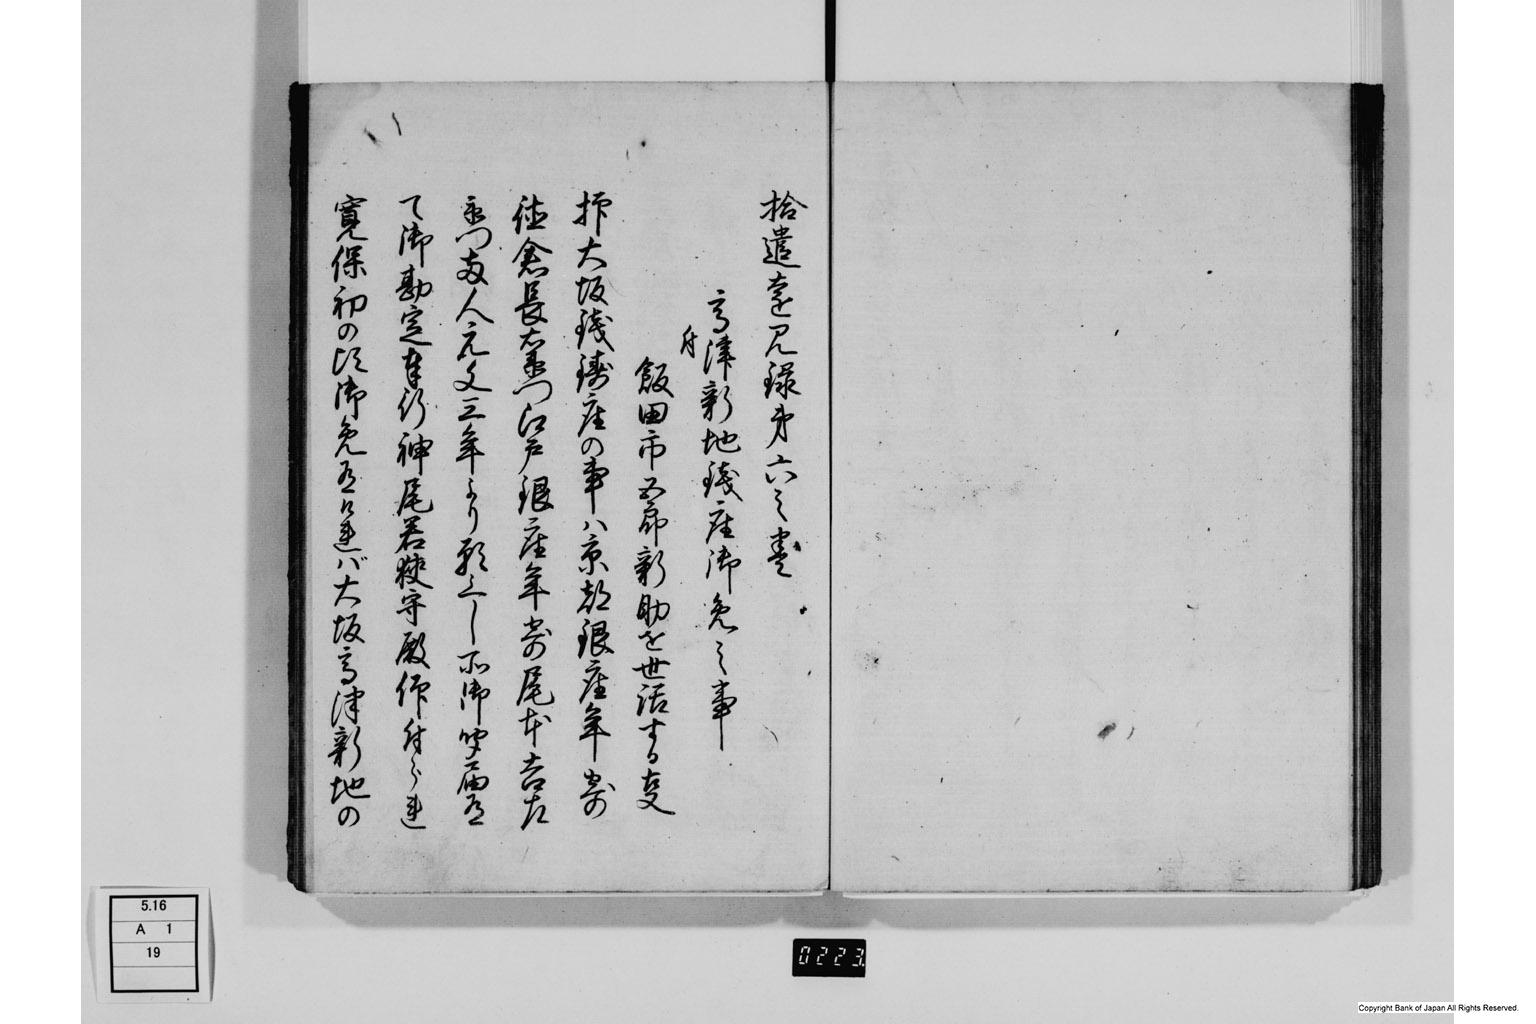 拾遺遠見録第六之巻
高津新地銭座御免之事
付
飯田市五郎新助を世話する事
抑大坂銭鋳座の事ハ京都銀座年寄
徳倉長右衛門江戸銀座年寄尾本吉左
衛門両人元文三年より願上し所御聞届有
て御勘定奉行神尾若狭守殿仰付られ
寛保初の頃御免有けれバ大坂高津新地の
5.16
A 1
19
0223
Copyright Bank of Japan All Rights Reserved.